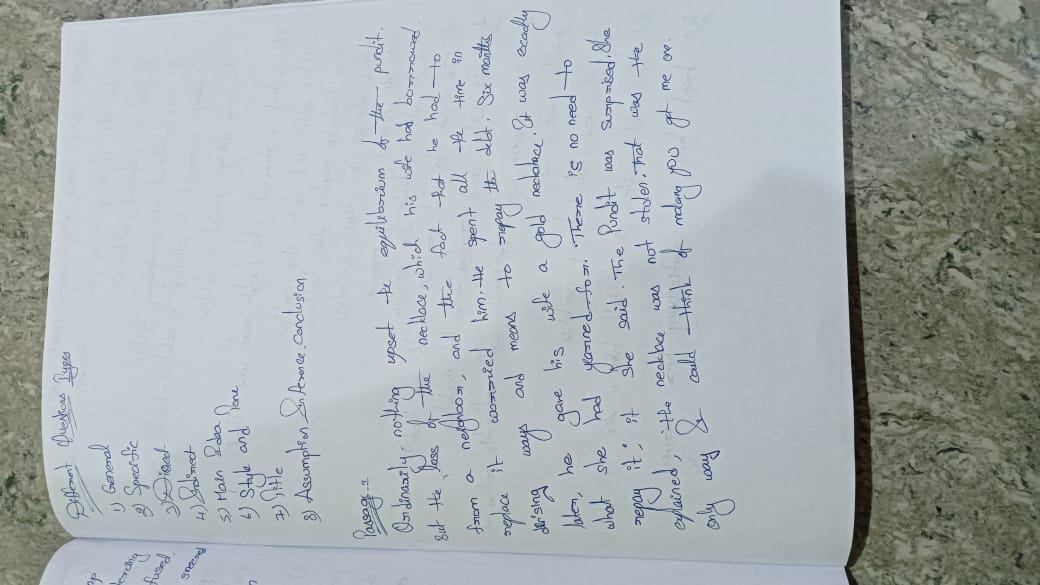 Different Questions Types
1) General
2) Specific
3) Direct
4) Indirect
5) Main Idea
6) Style and Tone
7) Title
8) Assumption, Inference, Conclusion.
Passage-2
Ordinarily nothing upset the equilibrium of the pundit.
But the loss of the necklace, which his wife had borrowed
from a neighbour, and the fact that he had to
replace it worried him. He spent all the time in
devising ways and means to repay the debt. Six months
later, he gave his wife a gold necklace. It was exactly
what she had yearned for. There is no need to
repay it; it She said. The Pundit was surprised. She
explained, the necklace was not stolen. That was the
only way I could think of making you get me one.
fused.